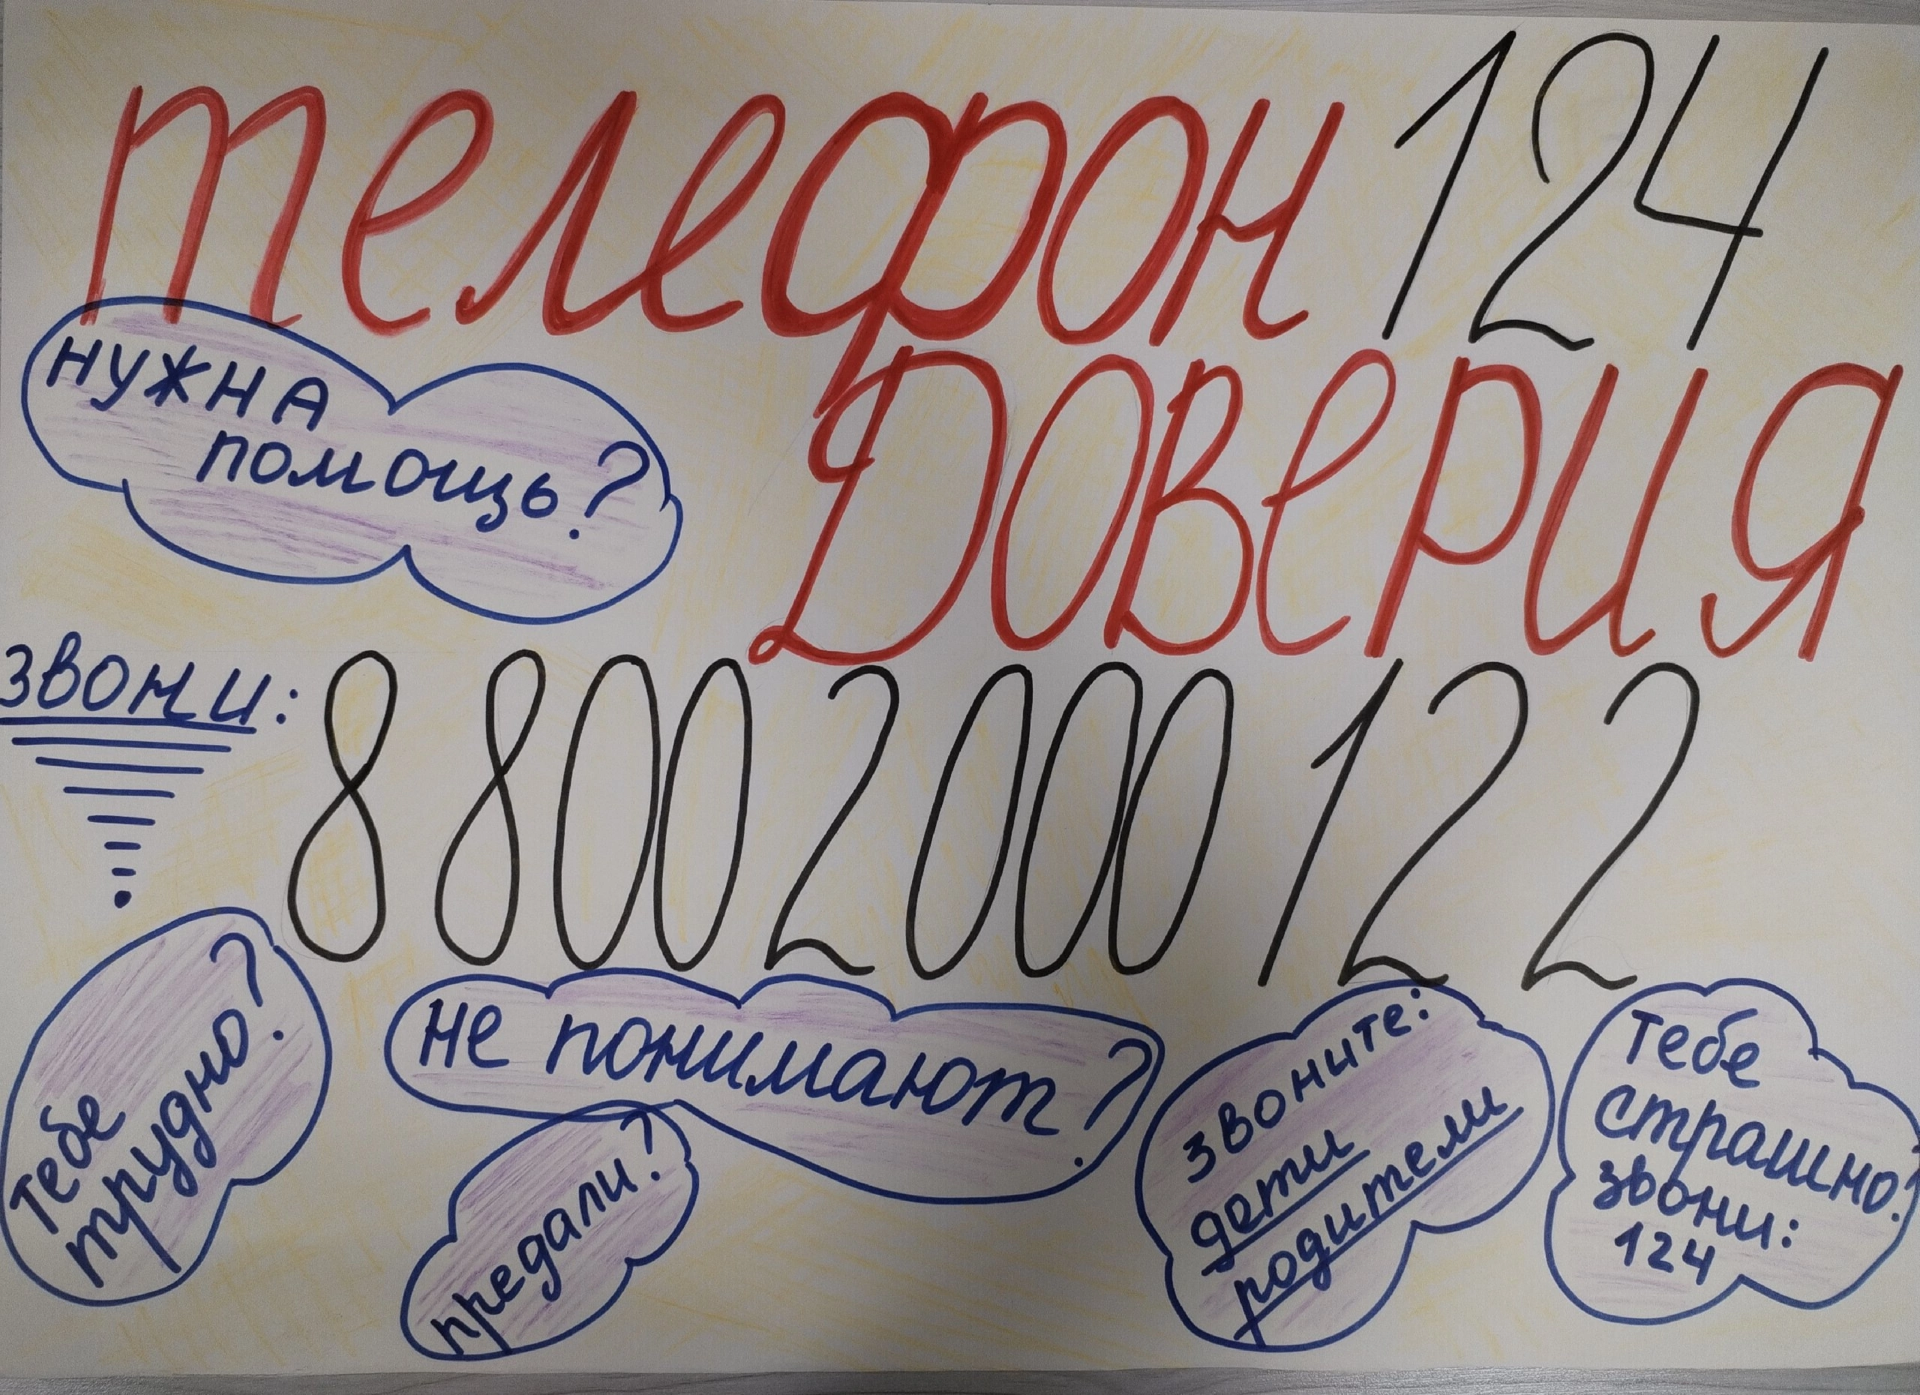 телефон 124
Доверия
нужна
помощь?
звони: 8 800 2000 122
тебе
трудно?
не понимают?
предали?
звоните:
дети
родители
тебе
страшно?
звони:
124